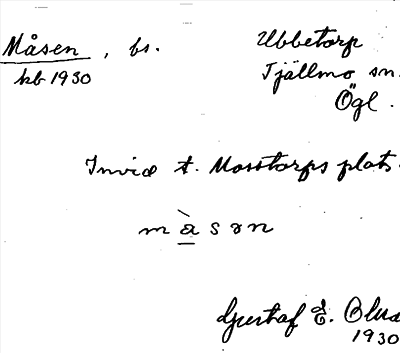 Måsen, bs. Ubbetorp
kb 1930 Tjällmo sn.
Ögl.
Invid t. Mosstorps plats.
måsən
Gustaf E.
1930